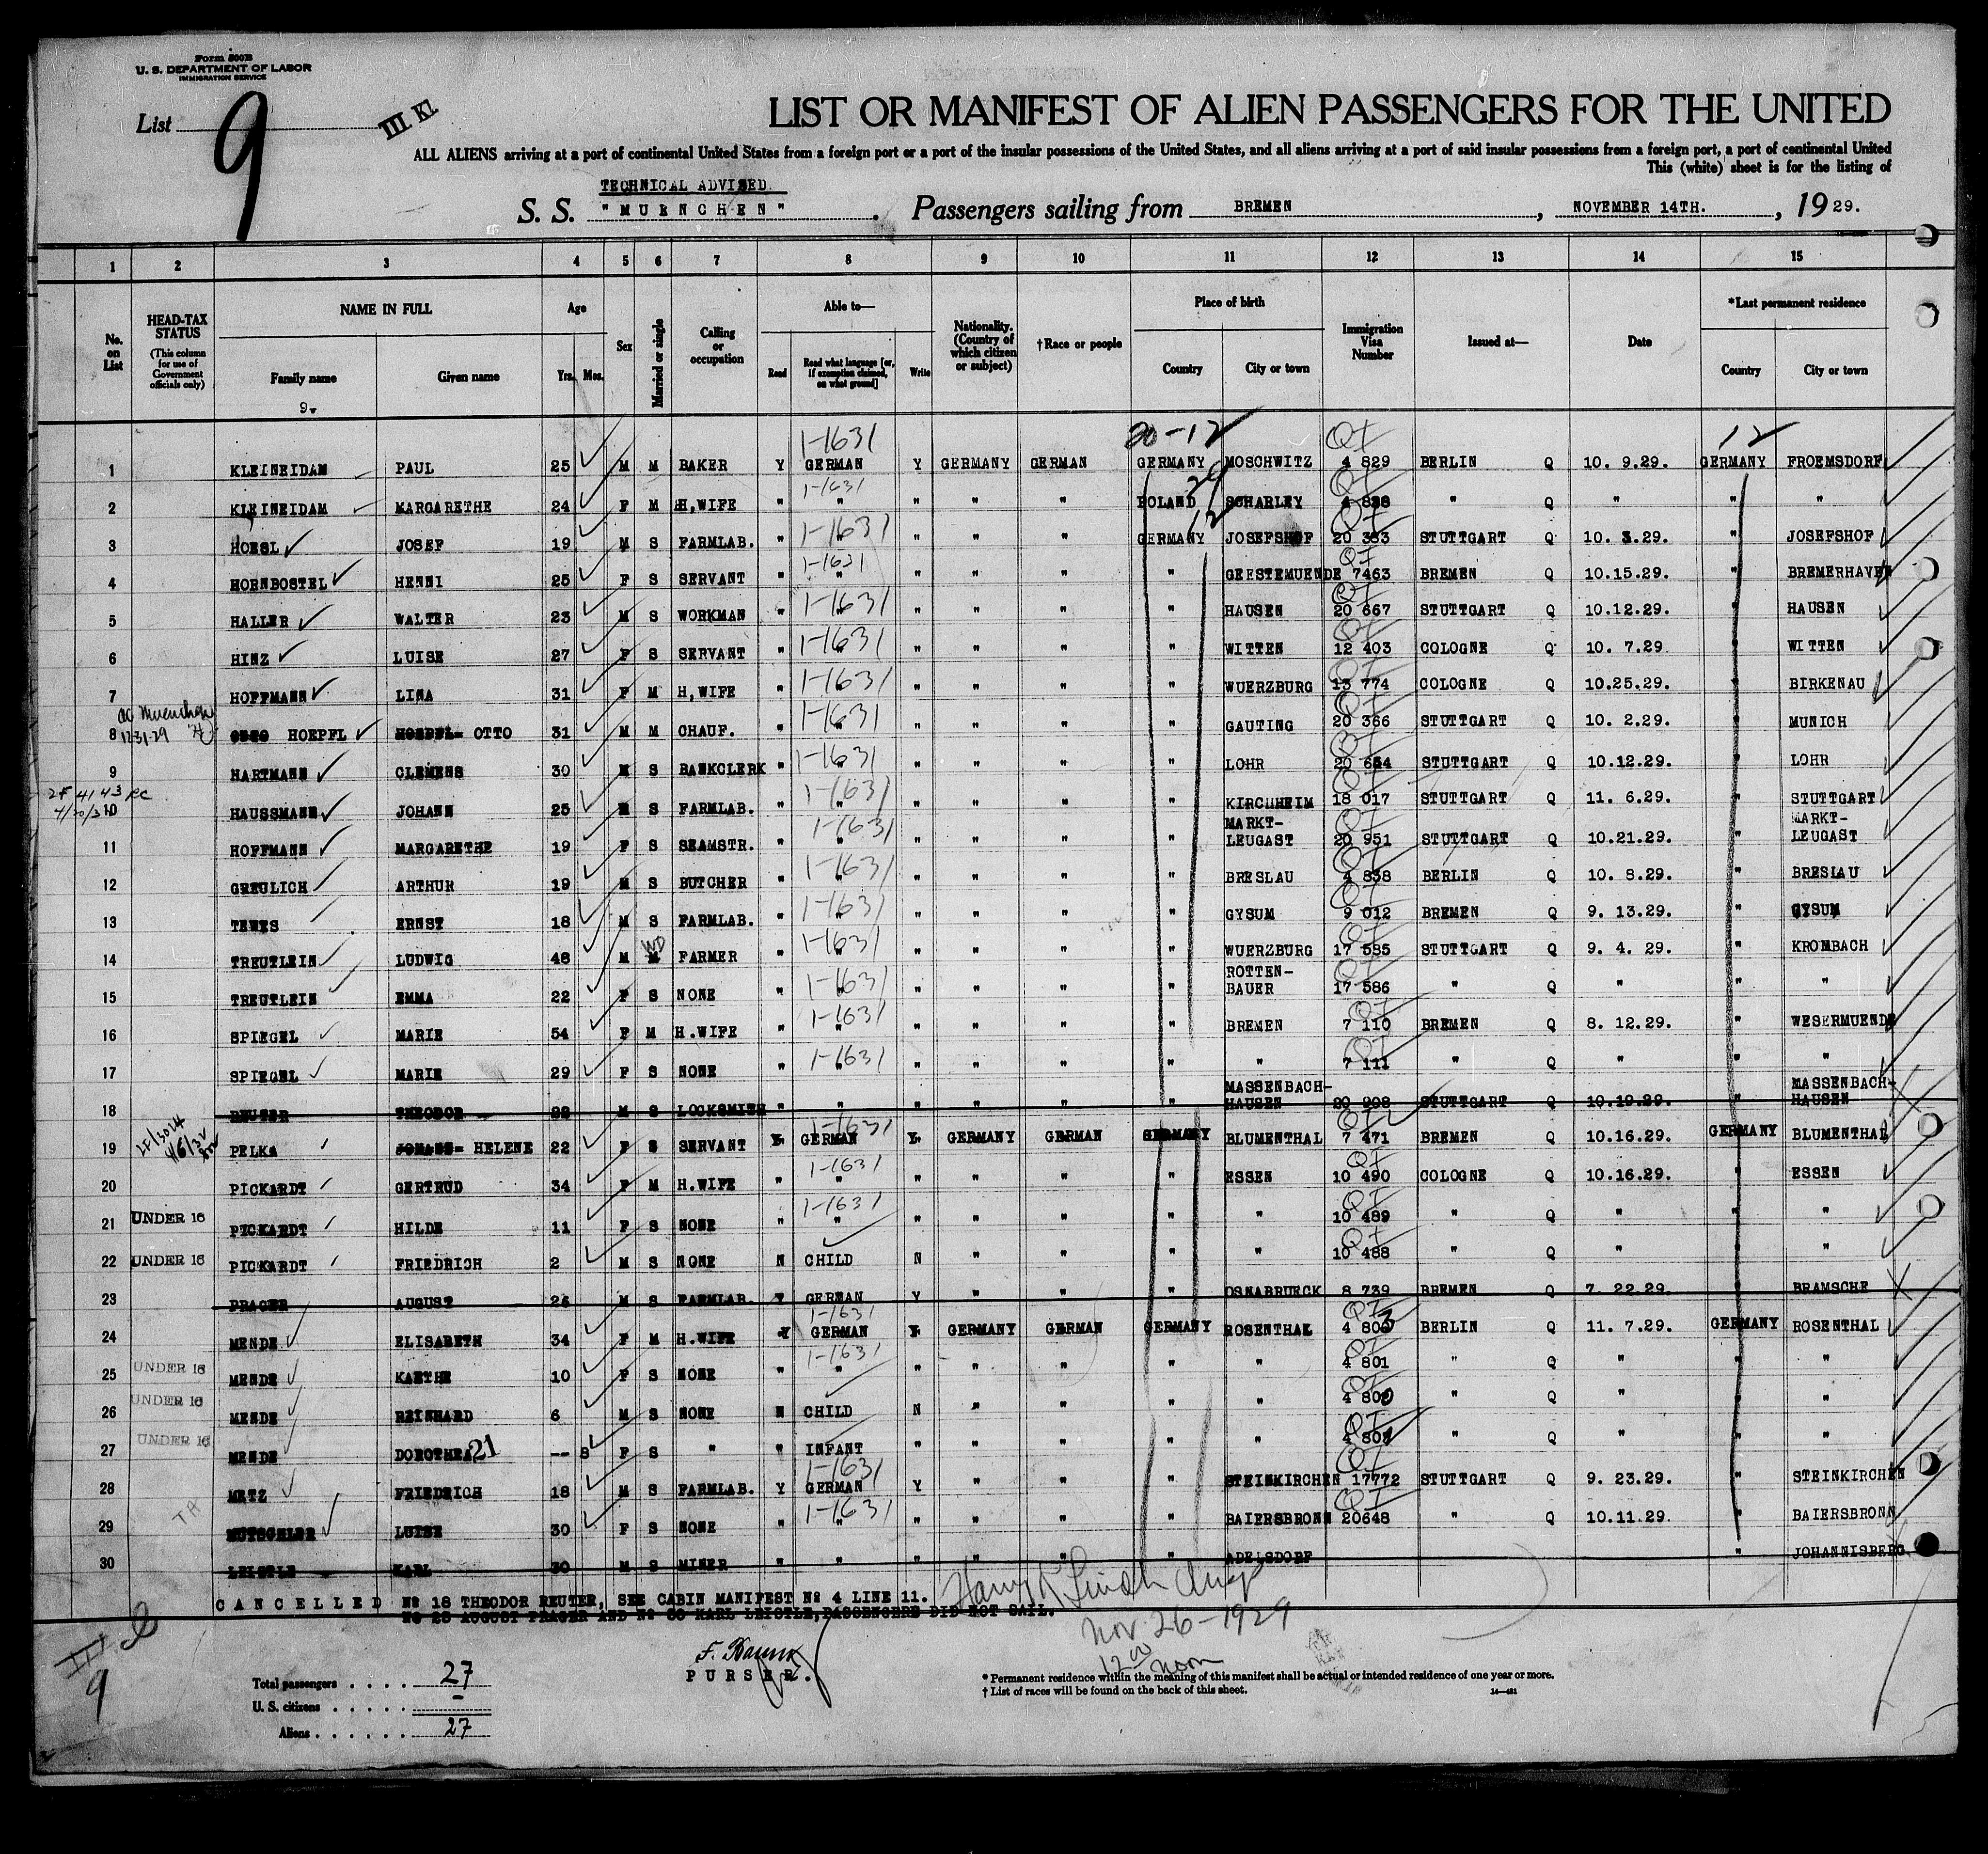 Form 500B
U. S. DEPARTMENT OF LABOR
IMMIGRATION SERVICE
List 9 III Kl.
LIST OR MANIFEST OF ALIEN PASSENGERS FOR THE UNITED
ALL ALIENS arriving at a port of continental United States from a foreign port or a port of the insular possessions of the United States, and all aliens arriving at a port of said insular possessions from a foreign port, a port of continental United
This (white) sheet is for the listing of
TECHNICAL ADVISED.
S. S. "MUENCHEN" . Passengers sailing from BREMEN , NOVEMBER 14TH. , 1929.
1 2 3 4 5 6 7 8 9 10 11 12 13 14 15
No. on List
HEAD-TAX STATUS (This column for use of Government officials only)
NAME IN FULL Family name Given name
Age Yrs. Mos.
Sex
Married or single
Calling or occupation
Able to— Read Read what language [or, if exemption claimed, on what ground] Write
Nationality. (Country of which citizen or subject)
†Race or people
Place of birth Country City or town
Immigration Visa Number
Issued at—
Date
*Last permanent residence Country City or town
1-1631 20-12 QI 12
1 KLEINEIDAM PAUL 25 M M BAKER Y GERMAN Y GERMANY GERMAN GERMANY MOSCHWITZ 4 829 BERLIN Q 10. 9.29. GERMANY FROEMSDORF
1-1631 QI
2 KLEINEIDAM MARGARETHE 24 F M H,WIFE " " " " " POLAND SCHARLEY 4 828 " Q " " "
1-1631 12 QI
3 HOESL JOSEF 19 M S FARMLAB. " " " " " GERMANY JOSEFSHOF 20 333 STUTTGART Q 10. 3.29. " JOSEFSHOF
1-1631 QI
4 HORNBOSTEL HENNI 25 F S SERVANT " " " " " " GEESTEMUENDE 7463 BREMEN Q 10.15.29. " BREMERHAVEN
1-1631 QI
5 HALLER WALTER 23 M S WORKMAN " " " " " " HAUSEN 20 667 STUTTGART Q 10.12.29. " HAUSEN
1-1631 QI
6 HINZ LUISE 27 F S SERVANT " " " " " " WITTEN 12 403 COLOGNE Q 10. 7.29 " WITTEN
1-1631 QI
7 HOFFMANN LINA 31 F M H,WIFE " " " " " " WUERZBURG 13 774 COLOGNE Q 10.25.29. " BIRKENAU
Muenchen 12-31-29 1-1631 QI
8 OTTO HOEPFL HOEPFL- OTTO 31 M M CHAUF. " " " " " " GAUTING 20 366 STUTTGART Q 10. 2.29. " MUNICH
1-1631 QI
9 HARTMANN CLEMENS 30 M S BANKCLERK " " " " " " LOHR 20 664 STUTTGART Q 10.12.29. " LOHR
1-1631 QI
10 HAUSSMANN JOHANN 25 M S FARMLAB. " " " " " " KIRCHHEIM 18 017 STUTTGART Q 11. 6.29. " STUTTGART
1-1631 MARKT- QI MARKT-
11 HOFFMANN MARGARETHE 19 F S SEAMSTR. " " " " " " LEUGAST 20 951 STUTTGART Q 10.21.29. " LEUGAST
1-1631 QI
12 GREULICH ARTHUR 19 M S BUTCHER " " " " " " BRESLAU 4 838 BERLIN Q 10. 8.29. " BRESLAU
1-1631 QI
13 TEWES ERNST 18 M S FARMLAB. " " " " " " GYSUM 9 012 BREMEN Q 9. 13.29. " GYSUM
WD 1-1631 QI
14 TREUTLEIN LUDWIG 48 M M FARMER " " " " " " WUERZBURG 17 585 STUTTGART Q 9. 4. 29. " KROMBACH
1-1631 ROTTEN- QI
15 TREUTLEIN EMMA 22 F S NONE " " " " " " BAUER 17 586 " Q " " "
1-1631 QI
16 SPIEGEL MARIE 54 F M H.WIFE " " " " " " BREMEN 7 110 BREMEN Q 8. 12.29. " WESERMUENDE
1-1631 QI
17 SPIEGEL MARIE 29 F S NONE " " " " " " " 7 111 " Q " " "
MASSENBACH- MASSENBACH-
18 REUTER THEODOR 28 M S LOCKSMITH " " " " " " HAUSEN 20 908 STUTTGART Q 10.19.29. " HAUSEN
1-1631 QI
19 PELKA HELENE 22 F S SERVANT Y. GERMAN Y. GERMANY GERMAN GERMANY BLUMENTHAL 7 471 BREMEN Q 10.16.29. GERMANY BLUMENTHAL
1-1631 QI
20 PICKARDT GERTRUD 34 F M H.WIFE " " " " " " ESSEN 10 490 COLOGNE Q 10.16.29. " ESSEN
1-1631 QI
21 UNDER 16 PICKARDT HILDE 11 F S NONE " " " " " " " 10 489 " Q " " "
QI
22 UNDER 16 PICKARDT FRIEDRICH 2 M S NONE N CHILD N " " " " 10 488 " Q " " "
23 PRAGER AUGUST 26 M S FARMLAB. Y GERMAN Y " " " OSNABRUECK 8 739 BREMEN Q 7. 22.29. " BRAMSCHE
1-1631 QI
24 MENDE ELISABETH 34 F M H.WIFE Y GERMAN Y. GERMANY GERMAN GERMANY ROSENTHAL 4 803 BERLIN Q 11. 7.29. GERMANY ROSENTHAL
1-1631 QI
25 UNDER 16 MENDE KAETHE 10 F S NONE " " " " " " " 4 801 " Q " " "
QI
26 UNDER 16 MENDE REINHARD 6 M S NONE N CHILD N " " " " 4 800 " Q " " "
QI
27 UNDER 16 MENDE DOROTHEA 21 -- 8 F S " " INFANT " " " " " 4 80 " Q " " "
1-1631 QI
28 METZ FRIEDRICH 18 M S FARMLAB. Y GERMAN Y " " " STEINKIRCHEN 17772 STUTTGART Q 9. 23.29. " STEINKIRCHEN
1-1631 QI
29 MUTSCHLER LUISE 30 F S NONE " " " " " " BAIERSBRONN 20648 " Q 10.11.29. " BAIERSBRONN
30 LEISTLE KARL 30 M S MINER " " " " " " ADELSDORF " JOHANNISBERG
CANCELLED Nº 18 THEODOR REUTER, SEE CABIN MANIFEST Nº 4 LINE 11.
Nº 23 AUGUST PRAGER AND Nº 30 KARL LEISTLE, PASSENGERS DID NOT SAIL.
Nov. 26-1929
12 00 noon
PURSER.
9
Total passengers . . . . 27
U. S. citizens . . . . . –
Aliens . . . . . . 27
* Permanent residence within the meaning of this manifest shall be actual or intended residence of one year or more.
† List of races will be found on the back of this sheet.
14—421